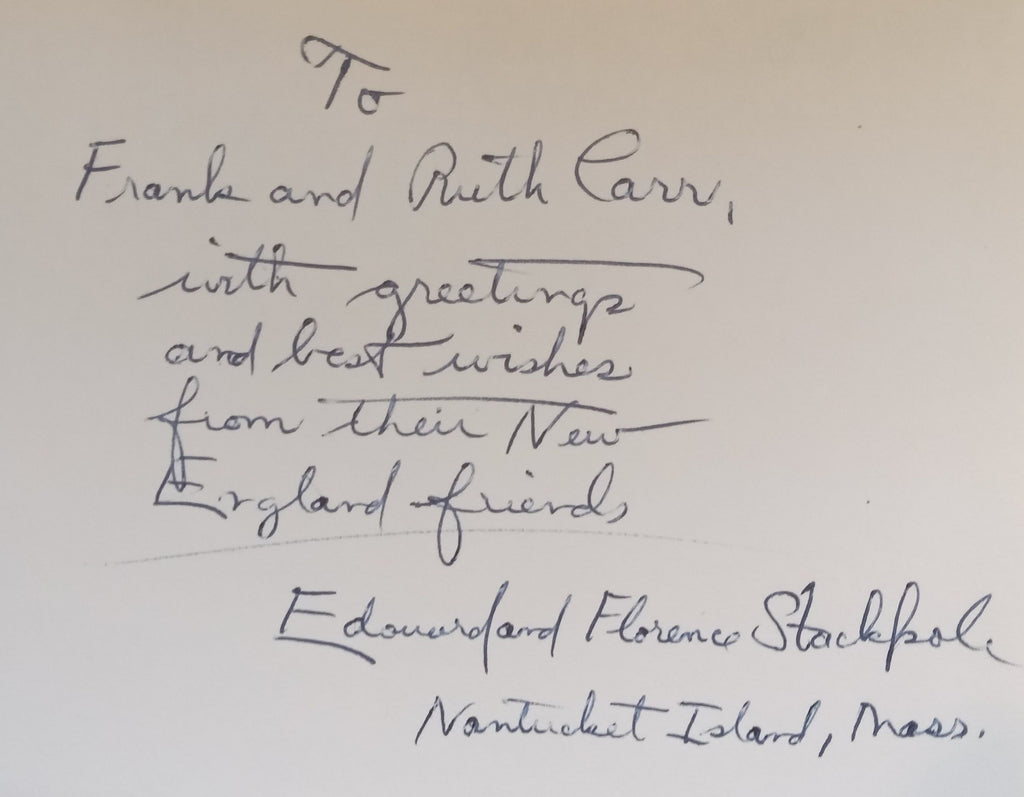 To
Frank and Ruth Carr,
with greetings
and best wishes
from their New
England friends
Edouard and Florence Stackpole
Nantucket Island, Mass.